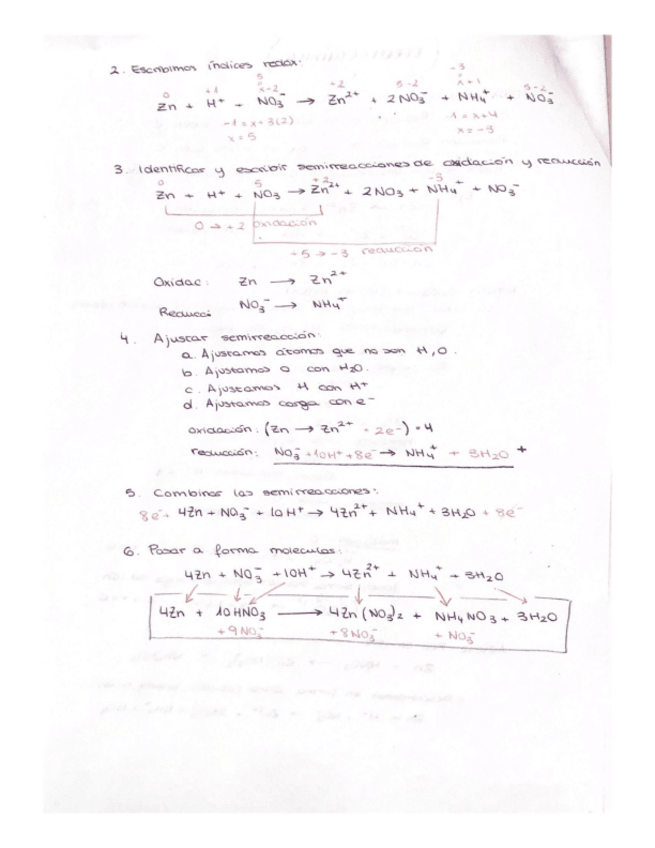 2. Escribimos índices redox:
0 +1 5 x-2 +2 5 -2 -3 x+1 5 -2
Zn + H⁺ + NO₃⁻ → Zn²⁺ + 2NO₃⁻ + NH₄⁺ + NO₃⁻
-1 = x - 3(2) -1 = x+4
x = 5 x = -3
3. Identificar y escribir semirreacciones de oxidación y reducción
0 5 +2 -3
Zn + H⁺ + NO₃ → Zn²⁺ + 2NO₃ + NH₄⁺ + NO₃⁻
0 → +2 oxidación
+5 → -3 reducción
Oxidac: Zn → Zn²⁺
Reducci NO₃⁻ → NH₄⁺
4. Ajustar semirreacción:
a. Ajustamos átomos que no son H, O.
b. Ajustamos O con H₂O.
c. Ajustamos H con H⁺
d. Ajustamos carga con e⁻
oxidación: (Zn → Zn²⁺ + 2e⁻) · 4
reducción: NO₃⁻ + 10H⁺ + 8e⁻ → NH₄⁺ + 3H₂O +
5. Combinar las semirreacciones:
8e⁻ + 4Zn + NO₃⁻ + 10H⁺ → 4Zn²⁺ + NH₄⁺ + 3H₂O + 8e⁻
6. Pasar a forma molecular:
4Zn + NO₃⁻ + 10H⁺ → 4Zn²⁺ + NH₄⁺ + 3H₂O
4Zn + 10HNO₃ → 4Zn(NO₃)₂ + NH₄NO₃ + 3H₂O
+ 9NO₃⁻ + 8NO₃⁻ + NO₃⁻